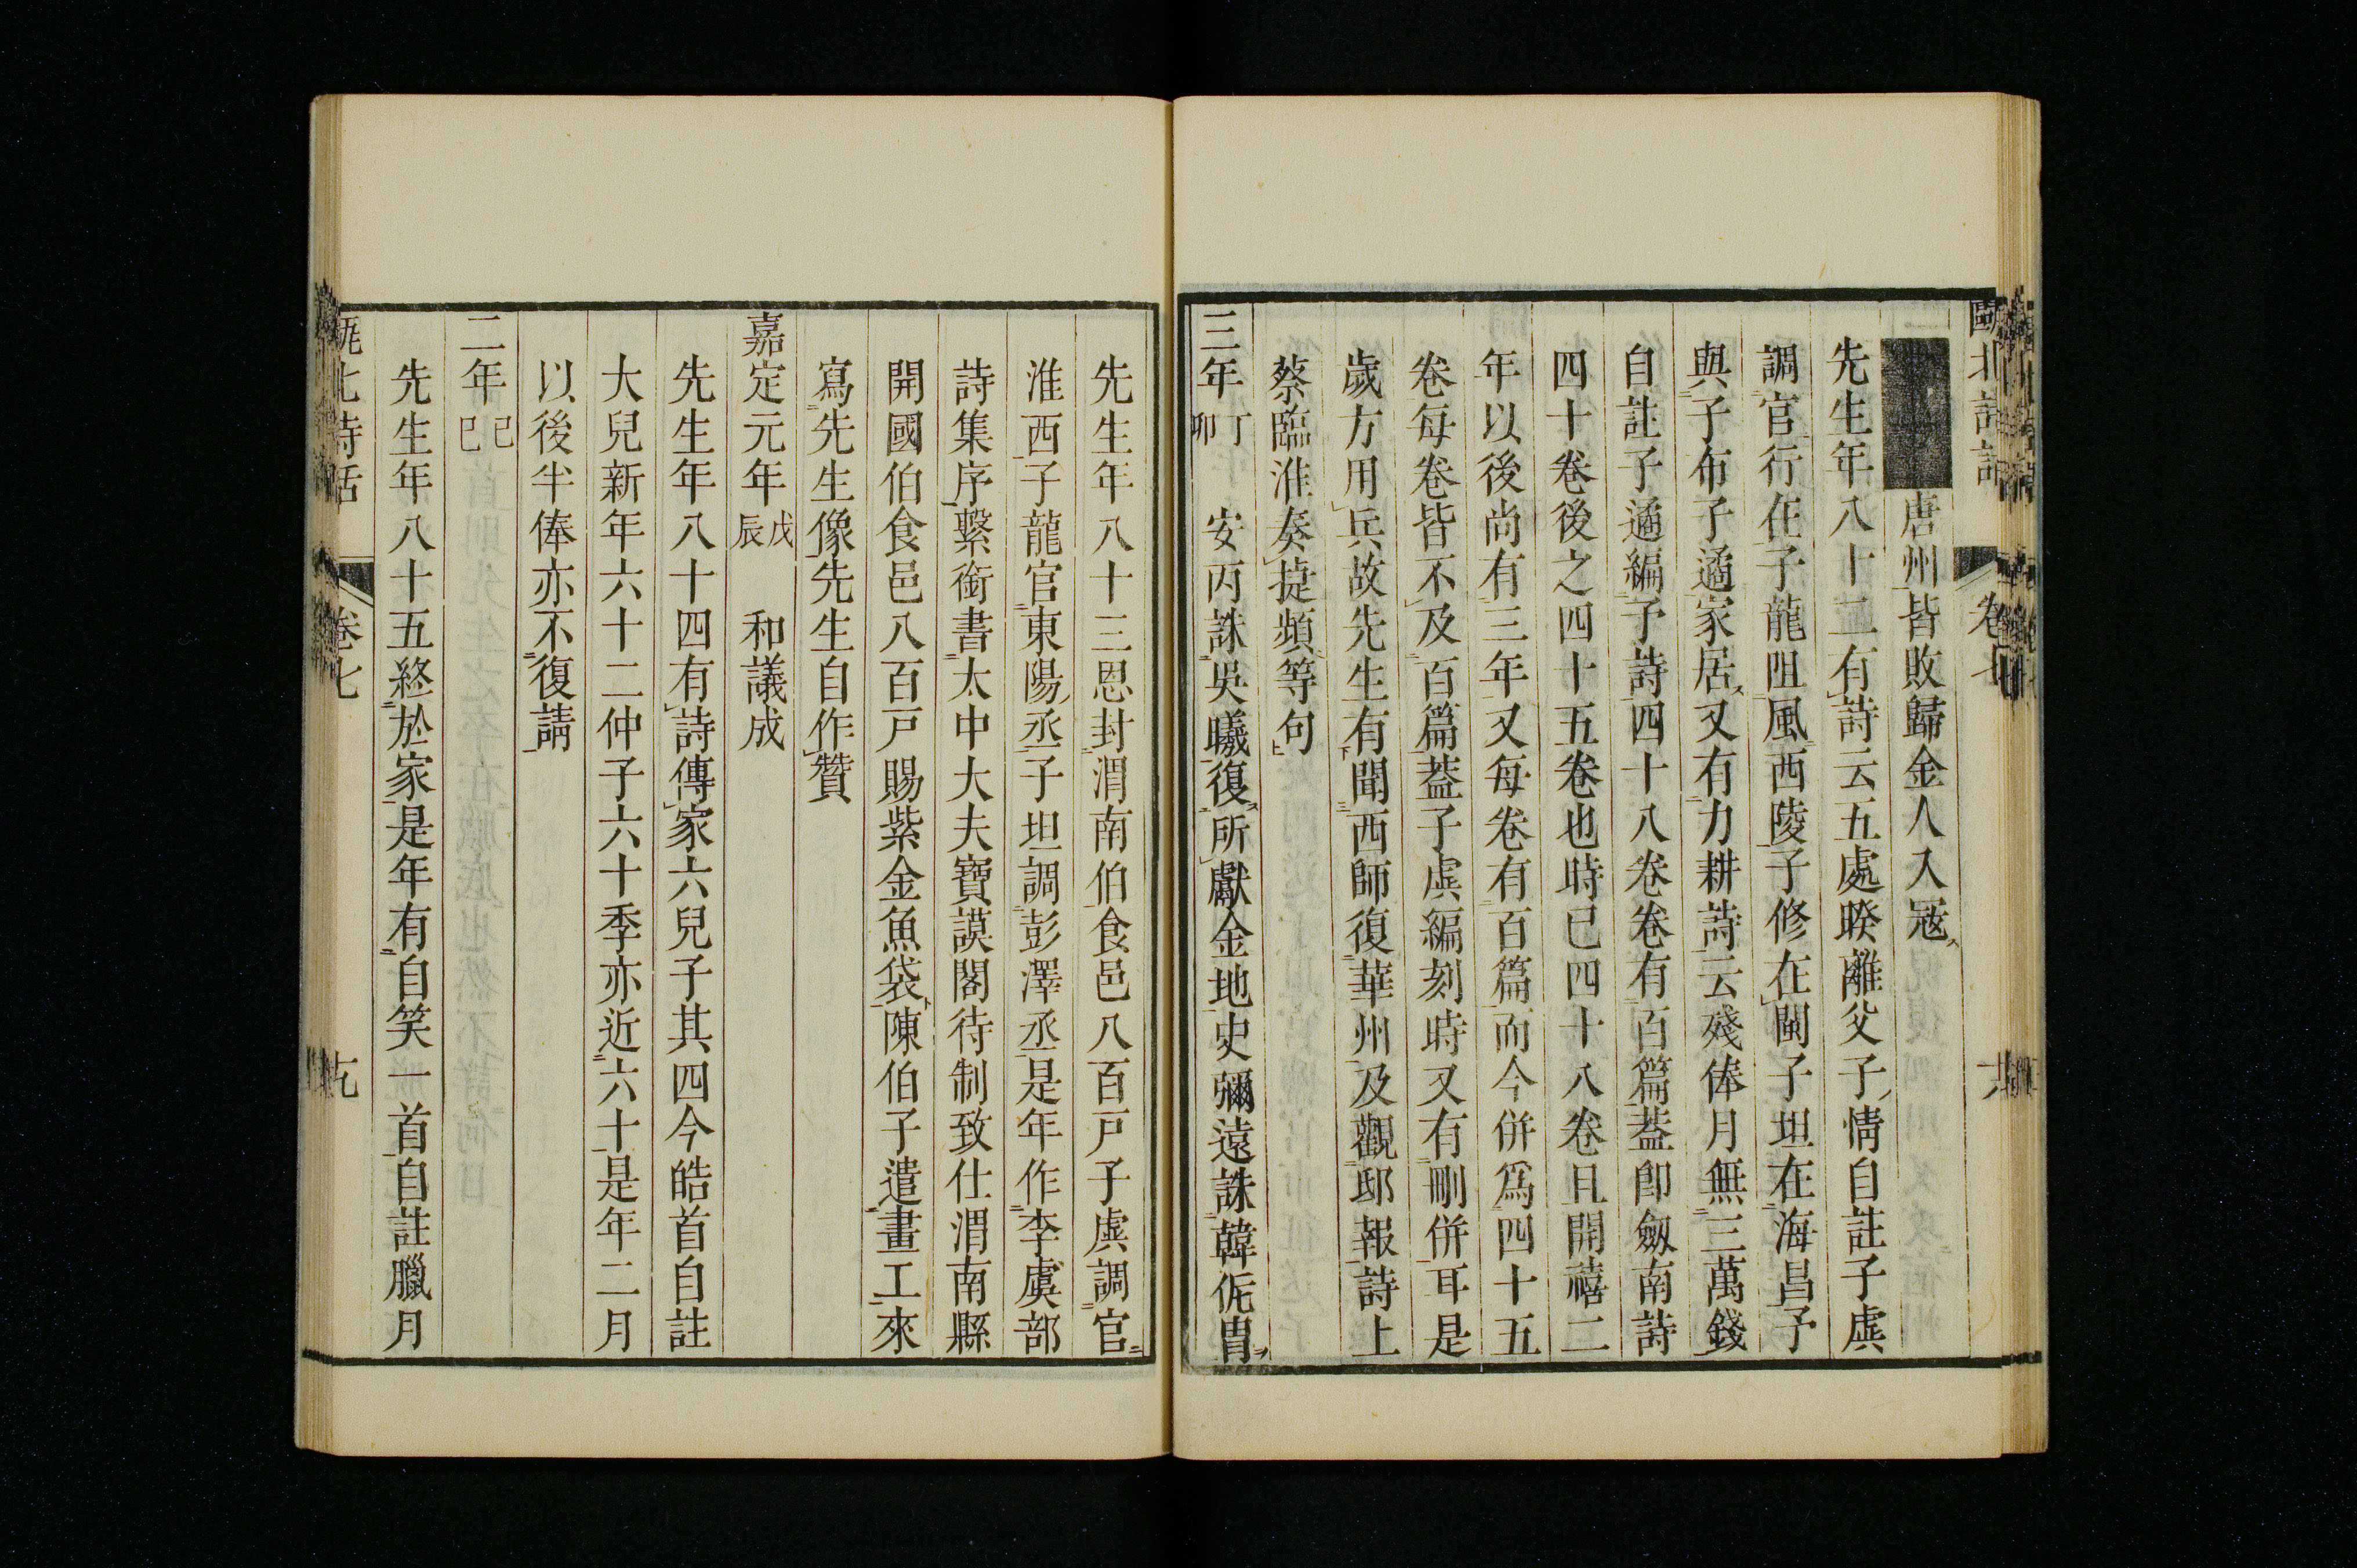 甌北詩話 卷七
唐州皆敗歸金人入冦
先生年八十二有詩云五處暌離父子情自註子虡
調官行在子龍阻風西陵子修在閩子坦在海昌予
與子布子遹家居又有力耕詩云殘俸月無三萬錢
自註子遹編予詩四十八卷卷有百篇葢卽劔南詩
四十卷後之四十五卷也時已四十八卷且開禧二
年以後尚有三年又每卷有百篇而今倂爲四十五
卷每卷皆不及百篇葢子虡編刻時又有刪倂耳是
歲方用兵故先生有聞西師復華州及觀邸報詩上
蔡臨淮奏捷頻等句
三年丁卯 安丙誅吳曦復所獻金地史彌遠誅韓侂胄
先生年八十三恩封渭南伯食邑八百戸子虡調官
淮西子龍官東陽丞子坦調彭澤丞是年作李虞部
詩集序繫銜書太中大夫寶謨閣待制致仕渭南縣
開國伯食邑八百戸賜紫金魚袋陳伯子遣畫工來
寫先生像先生自作贊
嘉定元年戊辰 和議成
先生年八十四有詩傳家六兒子其四今皓首自註
大兒新年六十二仲子六十季亦近六十是年二月
以後半俸亦不復請
二年己巳
先生年八十五終於家是年有自笑一首自註臘月
甌北詩話 卷七